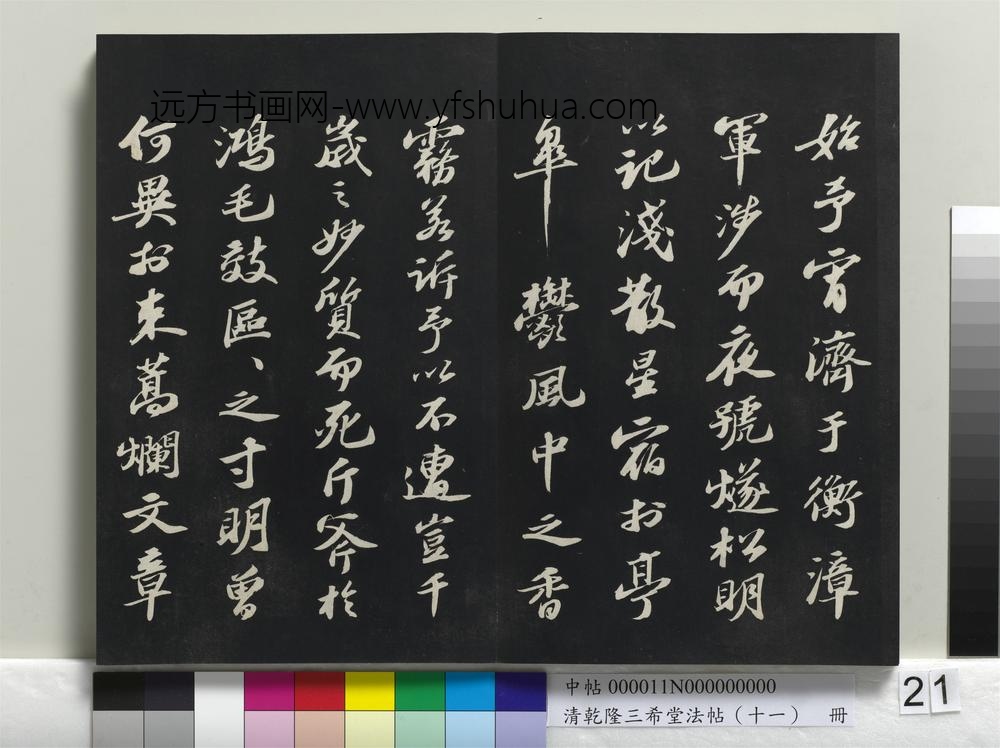 远方书画网-www.yfshuhua.com
始予宵濟于衡漳
軍涉而夜號燧松明
以記淺散星宿於亭
皋鬱風中之香
霧若訴予以不遭豈千
歲之妙質而死斤斧於
鴻毛效區、之寸明曾
何異於束蒿爛文章
中帖 000011N000000000
清乾隆三希堂法帖（十一） 冊
21